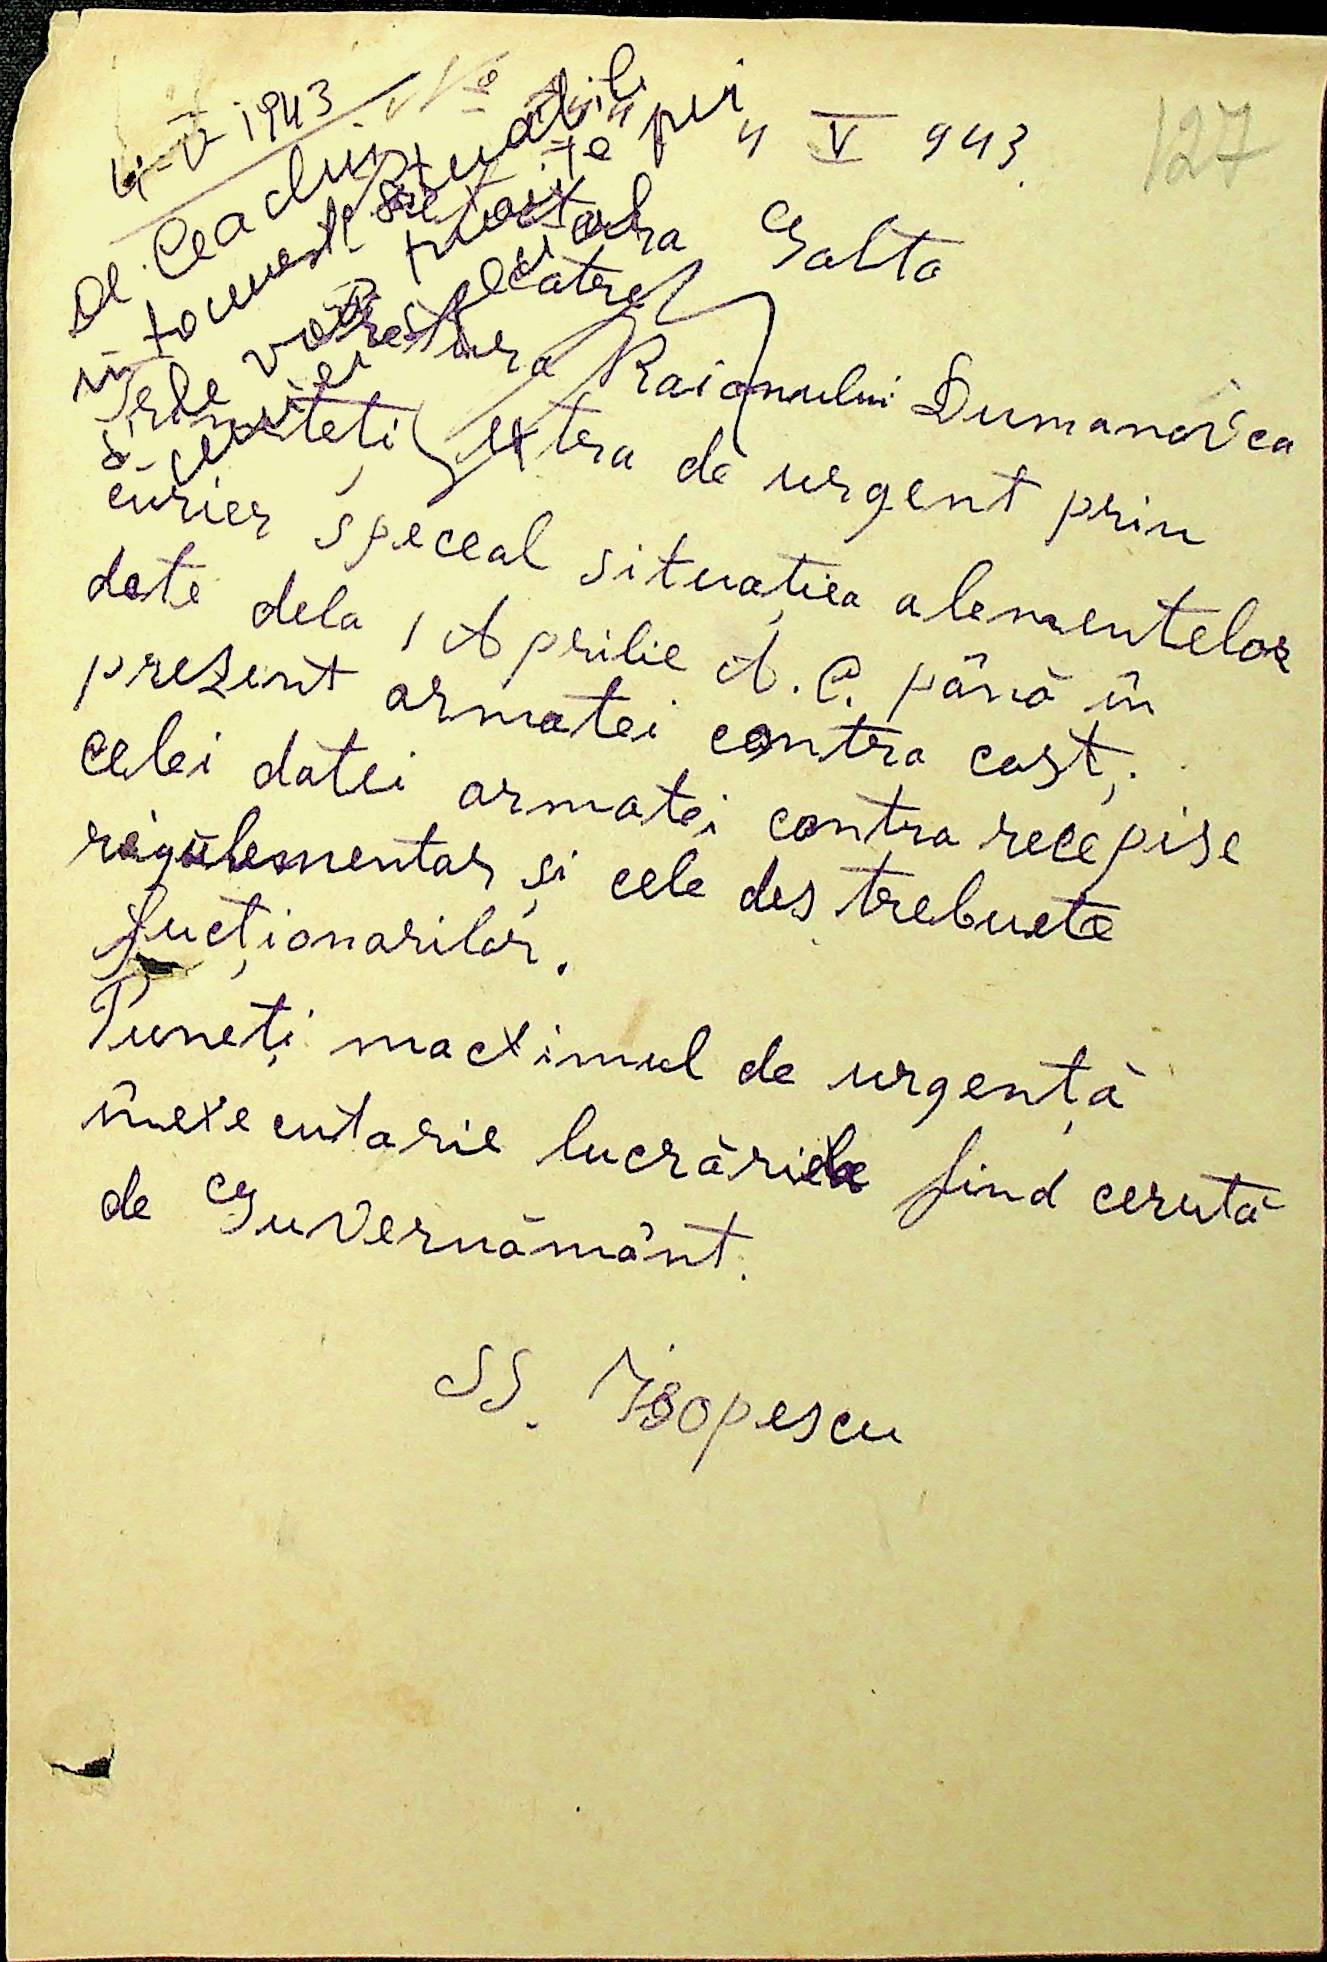 127
4 V 943.
4-V-1943
Dl. Ceaclur
întocmești situațiile
cerute
și vor fi trimise prin
curier
Prefectura Golta
catre
Pretura Raionului Dumanovca
Trimeteți extra de urgent prin
curier speceal situațiea alementelor
date dela 1 Aprilie A.C. până în
prezent armatei contra cost,
celei datei armatei contra recepise
regulementar și cele des trebuete
fucționarilor.
Puneți macximul de urgență
înexecutarie lucrăriele find cerută
de Guvernământ.
SS. Isopescu